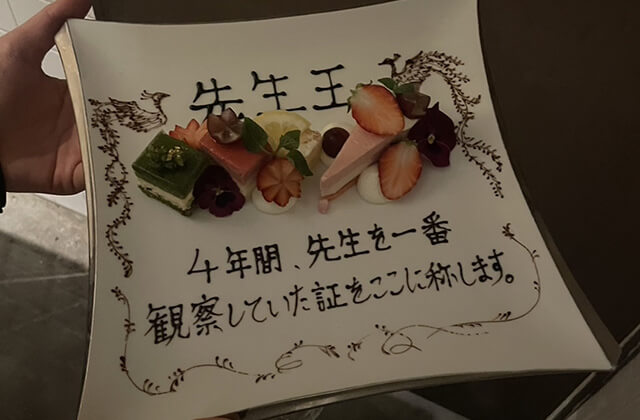 先生王
4年間、先生を一番
観察していた証をここに称します。